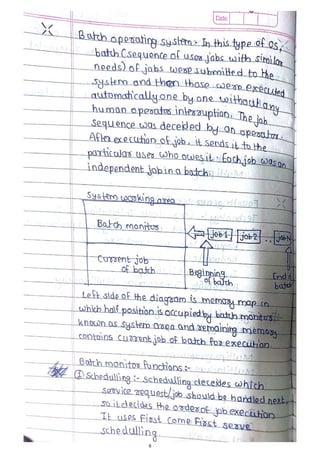 Date
Batch operating system:- In this type of OS,
batch (sequence of user jobs with similar
needs) of jobs were submitted to the
system and then those were executed
automatically one by one without any
human operator interruption. The job
sequence was decided by an operator.
After execution of job, it sends it to the
particular user who owes it. Each job was an
independent job in a batch.
System working area
Batch monitor
job 1 job 2 .. jobN
Current job
of batch
Beginning
of batch
End of
batch
Left side of the diagram is memory map in
which half position is occupied by batch monitor
known as system area and remaining memory
contains current job of batch for execution.
Batch monitor functions :-
① Schedulling :- schedulling decides which
service request/job should be handled next.
so it decides the order of job execution
It uses First Come First serve
schedulling